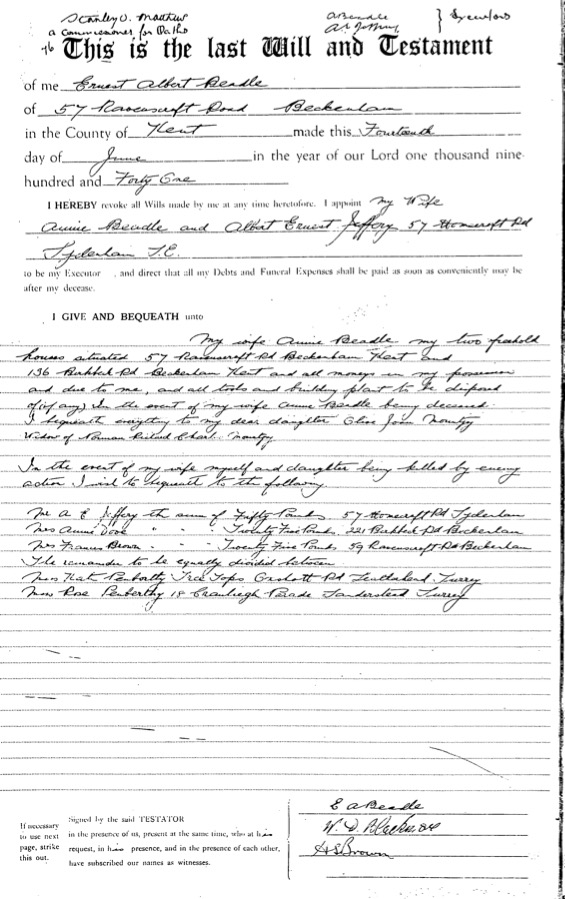 Stanley O. Matthew
a Commissioner for Oaths
A Beadle
A E Jeffery } Executors
This is the last Will and Testament
of me Ernest Albert Beadle
of 57 Ravenscroft Road Beckenham
in the County of Kent made this Fourteenth
day of June in the year of our Lord one thousand nine
hundred and Forty One
I HEREBY revoke all Wills made by me at any time heretofore. I appoint my Wife
Annie Beadle and Albert Ernest Jeffery 57 Homecroft Rd
Sydenham S.E.
to be my Executor , and direct that all my Debts and Funeral Expenses shall be paid as soon as conveniently may be
after my decease.
I GIVE AND BEQUEATH unto
My wife Annie Beadle my two freehold
houses situated 57 Ravenscroft Rd Beckenham Kent and
136 Birkbeck Rd Beckenham Kent and all moneys in my possession
and due to me, and all tools and building plant to be disposed
of (if any) In the event of my wife Annie Beadle being deceased
I bequeath everything to my dear daughter Olive Joan
Widow of Norman Richard
In the event of my wife myself and daughter being killed by enemy
action I wish to bequeath to the following
Mr A E Jeffery the sum of Fifty Pounds 57 Homecroft Rd Sydenham
Mrs Annie Dove " " Twenty Five Pounds 221 Birkbeck Rd Beckenham
Mrs Francis Brown " " Twenty Five Pounds 59 Ravenscroft Rd Beckenham
The remainder to be equally divided between
Miss Kate Penberthy Tree Tops Oxshott Rd Leatherhead Surrey
Miss Rose Penberthy 18 Cranleigh Parade Sanderstead Surrey
If necessary
to use next
page, strike
this out.
Signed by the said TESTATOR
in the presence of us, present at the same time, who at his
request, in his presence, and in the presence of each other,
have subscribed our names as witnesses.
E A Beadle
W. D. Blackmore
H S Brown